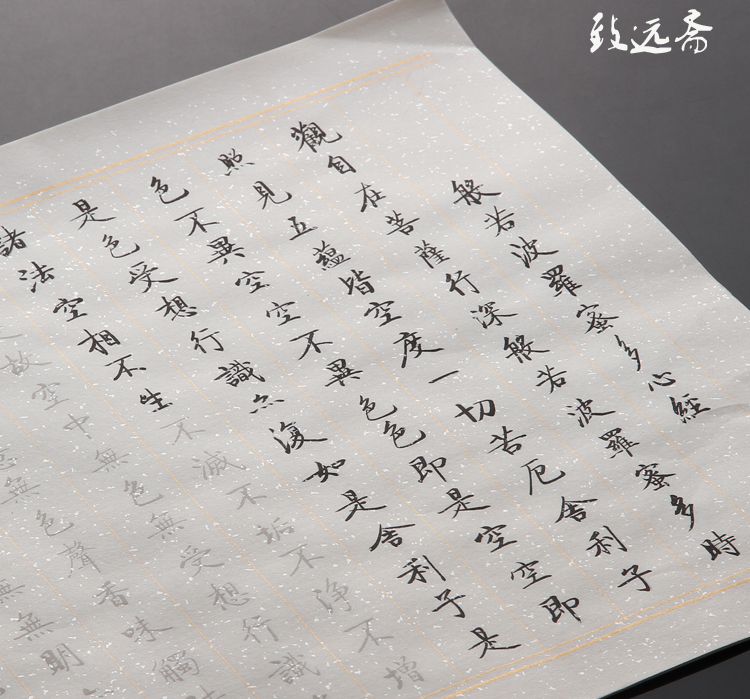 致远斋
般若波羅蜜多心經
觀自在菩薩行深般若波羅蜜多時
照見五蘊皆空度一切苦厄舍利子
色不異空空不異色色即是空空即
是色受想行識亦復如是舍利子是
諸法空相不生不滅不垢不淨不增
故空中無色無受想行識
意無色聲香味觸法
無無明